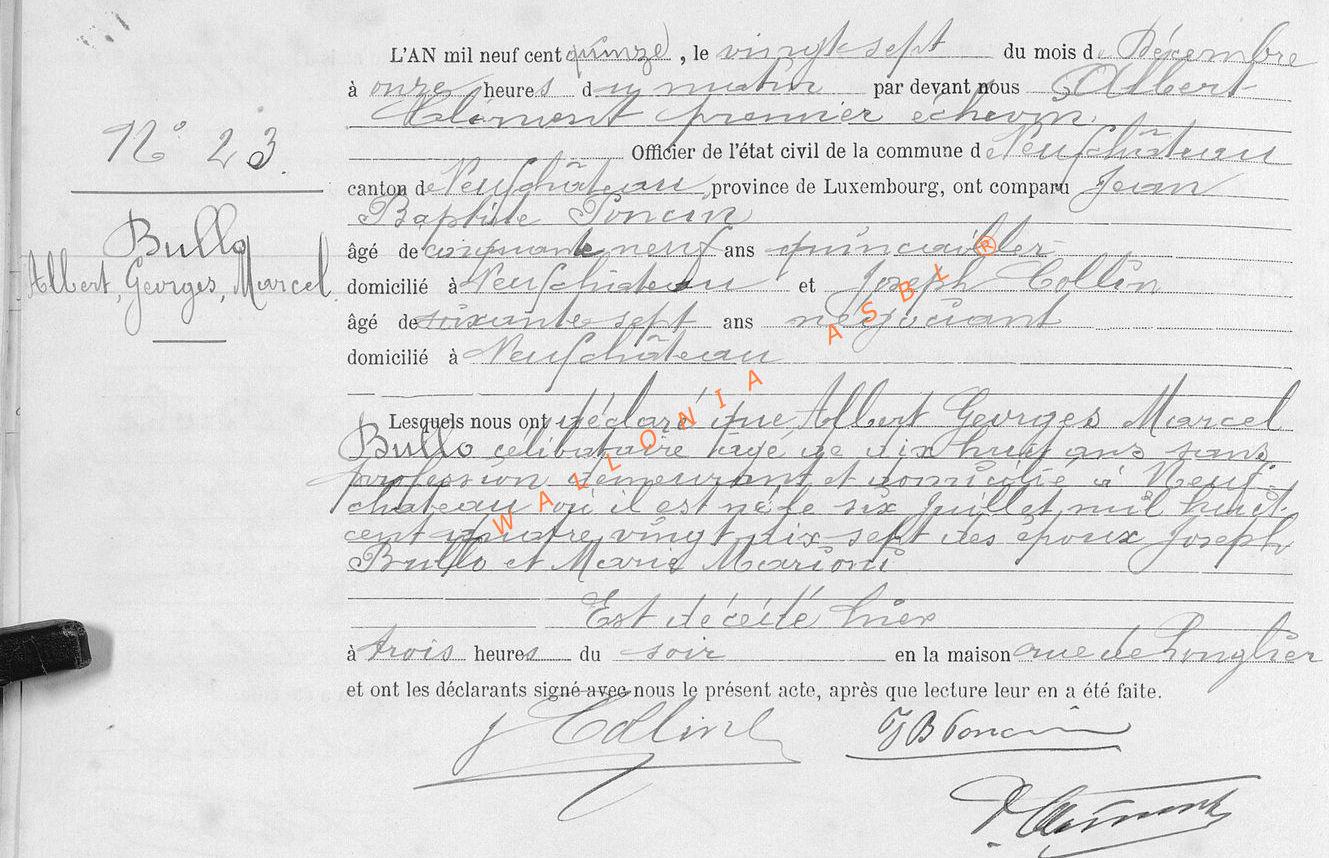 N° 23.
Bullo
Albert, Georges, Marcel.
L'AN mil neuf cent quinze, le vingt-sept du mois de Décembre
à onze heures du matin par devant nous Albert
Clément premier échevin.
Officier de l'état civil de la commune de Neufchâteau
canton de Neufchâteau, province de Luxembourg, ont comparu Jean
Baptiste Poncin
âgé de cinquante neuf ans quincailler
domicilié à Neufchâteau et Joseph Collin
âgé de soixante sept ans négociant
domicilié à Neufchâteau
Lesquels nous ont déclaré que Albert Georges Marcel
Bullo célibataire âgé de dix huit ans sans
profession demeurant et domicilié à Neuf-
château où il est né le six Juillet mil huit
cent quatre vingt dix sept des époux Joseph
Bullo et Marie Marioni
Est décédé hier
à trois heures du soir en la maison rue de Longlier
et ont les déclarants signé avec nous le présent acte, après que lecture leur en a été faite.
J Collin JB Poncin
Clément
WALLONIA ASBL ®